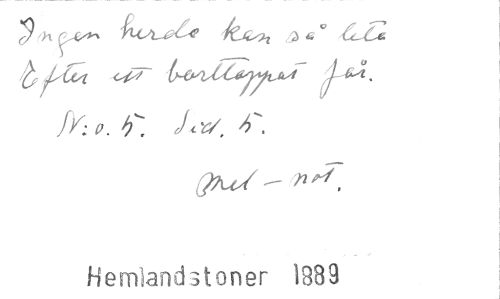 Ingen herde kan så leta
Efter ett borttappat får.
N:o. 5. Sid. 5.
Mel-not.
Hemlandstoner 1889